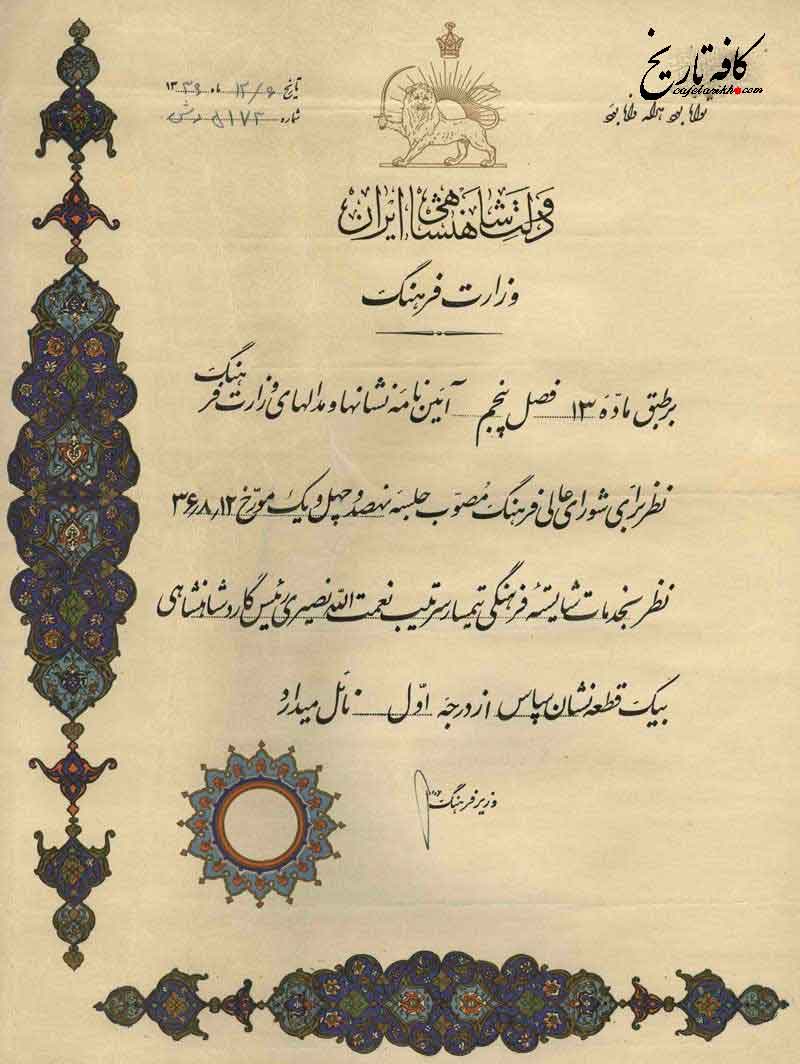 کافه تاریخ
cafetarikh.com
تاریخ ۱۲/۶ ماه ۱۳۳۹
شماره ۵۱۷۲
دولت شاهنشاهی ایران
وزارت فرهنگ
بر طبق مادّه ۱۳ فصل پنجم آئین نامه نشانها و مدالهای وزارت فرهنگ
نظر برای شورای عالی فرهنگ مصوّب جلسه نهصد و چهل و یک مورّخ ۳۶٫۸٫۱۲
نظر بخدمات شایستهٔ فرهنگی تیمسار سرتیپ نعمت الله نصیری رئیس گارد شاهنشاهی
بیک قطعه نشان سپاس از درجه اوّل نائل میدارد
وزیر فرهنگ